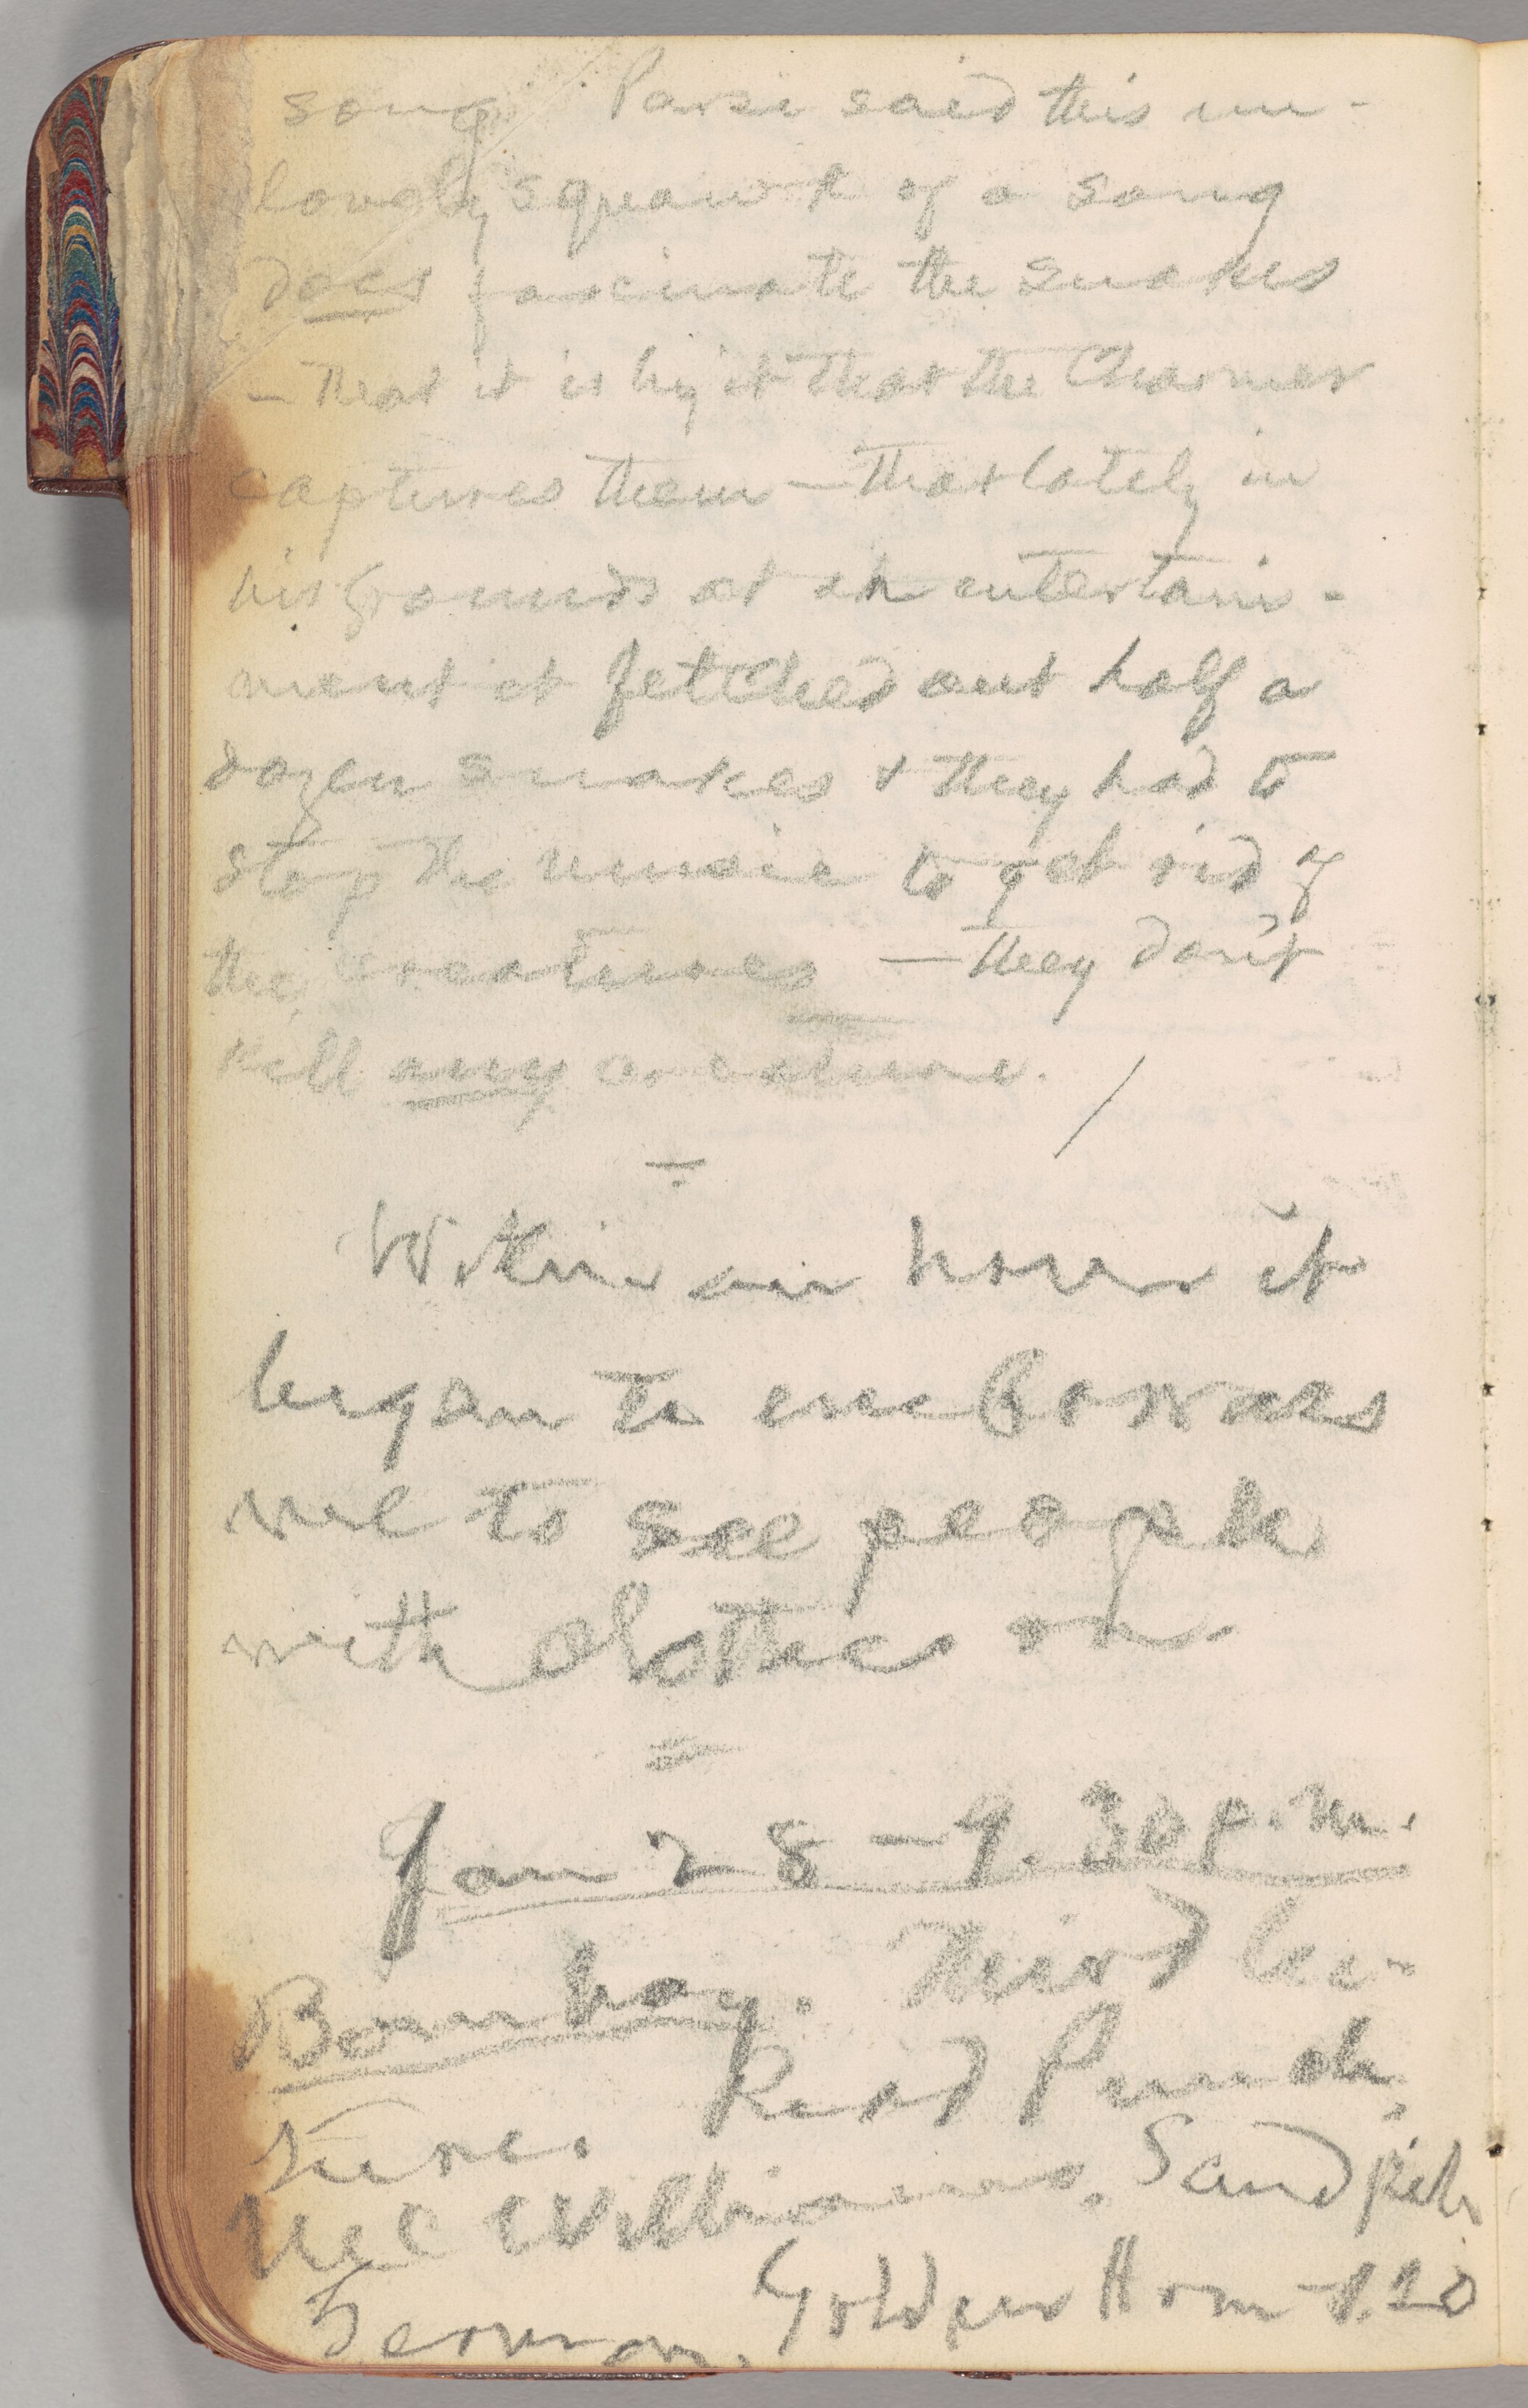 song. Parsi said this un-
lovely squawk of a song
does fascinate the snakes
— that it is by it that the Charmer
captures them — that lately in
his grounds at an entertain-
ment it fetched out half a
dozen snakes & they had to
stop the music to get rid of
the creatures — they don't
kill any creature.
Within an hour it
began to embarrass
me to see people
with clothes on.
Jan 28 — 9.30 p.m.
Bombay. Third lec-
ture. Read Punch,
McWilliams, Sandpile
German. Golden Arm 1.20